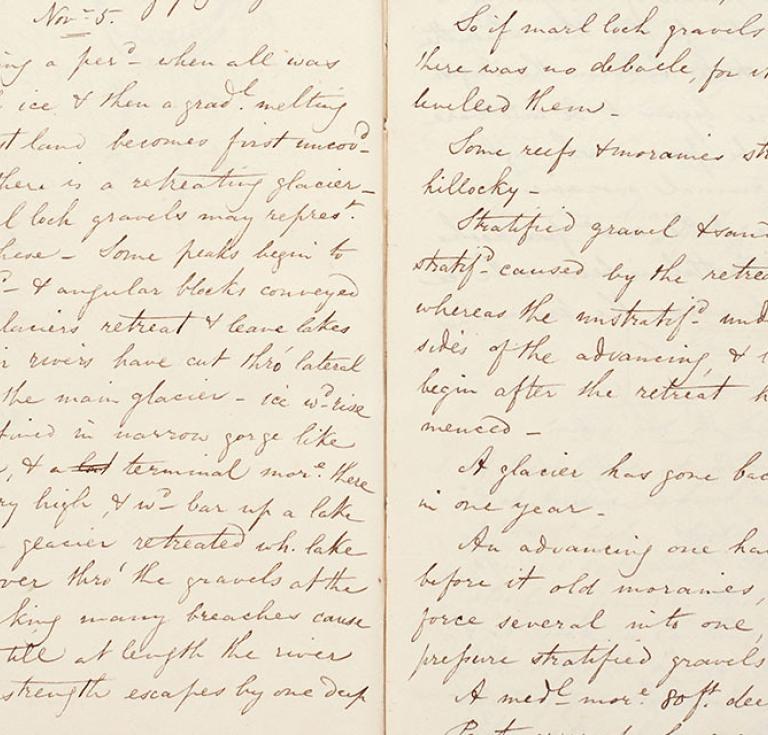 Nov.r 5.
ing a per.d - when all was
ice & then a grad.l melting
st land becomes first uncov.d -
there is a retreating glacier -
l loch gravels may repres.t
these - Some peaks begin to
d - & angular blocks conveyed
laciers retreat & leave lakes
r rivers have cut thro' lateral
the main glacier - ice w.d rise
fined in narrow gorge like
, & a terminal mor.e there
ry high, & w.d bar up a lake
glacier retreated wh. lake
over thro' the gravels at the
king many breaches cause
till at length the river
strength escapes by one deep
So if marl loch gravels
there was no debacle, for it
levelled them -
Some reefs & moraines str
hillocky -
Stratified gravel & sand
stratif.d - caused by the retrea
whereas the unstratif.d - und
sides of the advancing, &
begin after the retreat h
menced -
A glacier has gone bac
in one year -
An advancing one ha
before it old moraines,
force several into one,
pressure stratified gravels
A med.l - mor.e 80 ft. dee